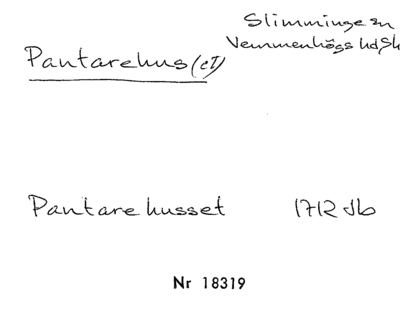 Slimminge sn
Vemmenhögs hd, Sk
Pantarehus (et)
Pantarehusset 1712 Jb
Nr 18319